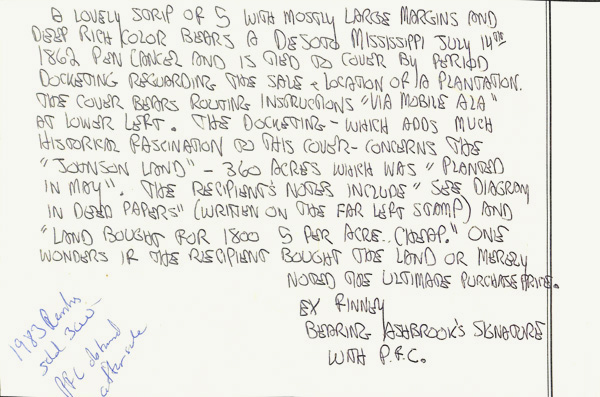 A LOVELY STRIP OF 5 WITH MOSTLY LARGE MARGINS AND
DEEP RICH COLOR BEARS A DESOTO MISSISSIPPI JULY 14TH
1862 PEN CANCEL AND IS TIED TO COVER BY PERIOD
DOCKETING REGUARDING THE SALE & LOCATION OF A PLANTATION.
THE COVER BEARS ROUTING INSTRUCTIONS "VIA MOBILE ALA"
AT LOWER LEFT. THE DOCKETING - WHICH ADDS MUCH
HISTORICAL FASCINATION TO THIS COVER - CONCERNS THE
"JOHNSON LAND" - 360 ACRES WHICH WAS "PLANTED
IN MAY". THE RECIPIENT'S NOTES INCLUDE "SEE DIAGRAM
IN DEED PAPERS" (WRITTEN ON THE FAR LEFT STAMP) AND
"LAND BOUGHT FOR 1800 5 PER ACRE.. CHEAP." ONE
WONDERS IF THE RECIPIENT BOUGHT THE LAND OR MERELY
NOTED THE ULTIMATE PURCHASE PRICE.
EX FINNEY
BEARING ASHBROOK'S SIGNATURE
WITH P.F.C.
1983
sold 3000-
PFC obtained
after sale